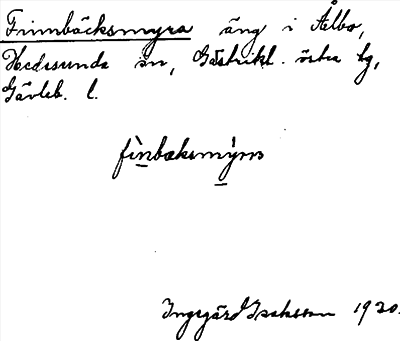 Finnbäcksmyra äng i Ålbo,
Hedesunda sn, Gästrikl. östra tg,
Gävleb. l.
finbaksmýrɷ
Ingegärd Isaksson 1920.